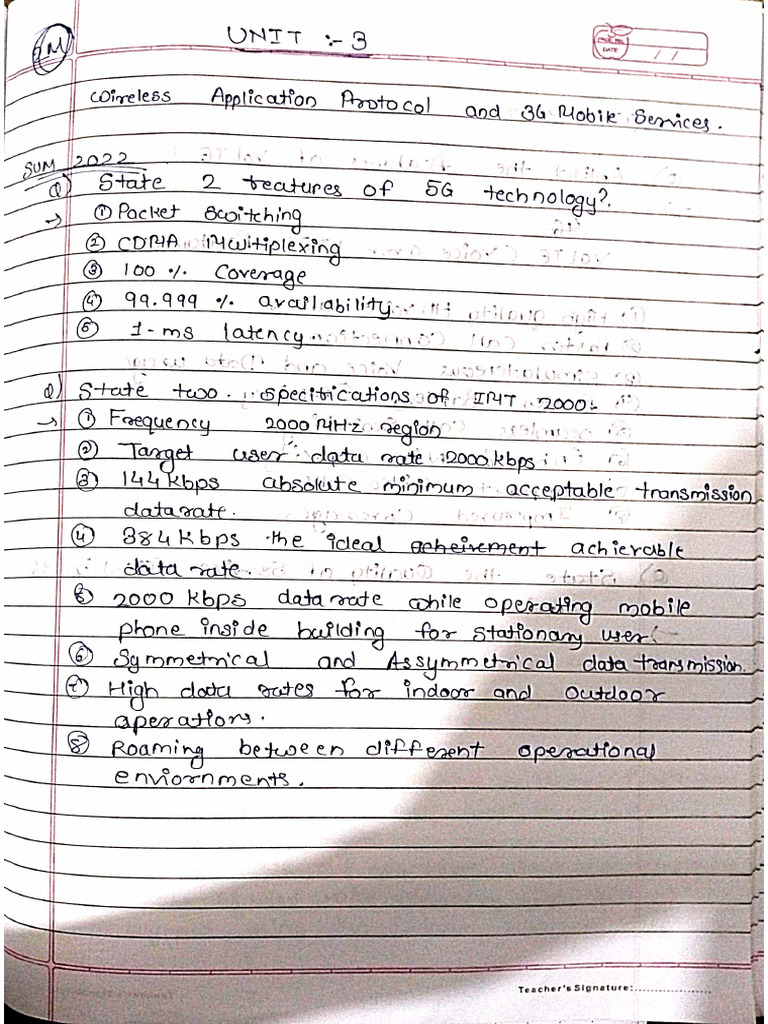 2M
UNIT :- 3
DATE / /
Wireless Application Protocol and 3G Mobile Services.
SUM 2022
Q) State 2 features of 5G technology?
→ ① Packet Switching
② CDMA Multiplexing
③ 100 % Coverage
④ 99.999 % availability
⑤ 1-ms latency
Q) State two specifications of IMT 2000:
→ ① Frequency 2000 MHz region
② Target user data rate :2000 kbps
③ 144 kbps absolute minimum acceptable transmission
data rate.
④ 384 Kbps the ideal acheivement achievable
data rate.
⑤ 2000 Kbps data rate while operating mobile
phone inside building for stationary user
⑥ Symmetrical and Assymmetrical data transmission.
⑦ High data rates for indoor and outdoor
operations.
⑧ Roaming between different operational
enviornments.
Teacher's Signature: